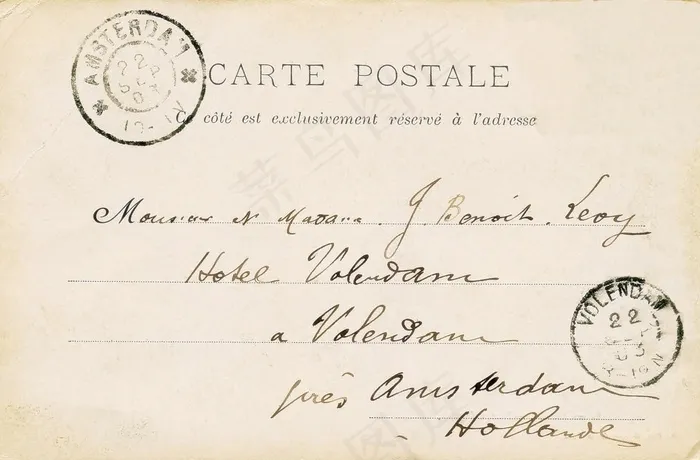 AMSTERDAM
22
CARTE POSTALE
Ce côté est exclusivement réservé à l'adresse
Monsieur et Madame J. Benoit Levy
Hotel Volendam
a Volendam
près Amsterdam
Hollande
VOLENDAM
22
菜鸟图库